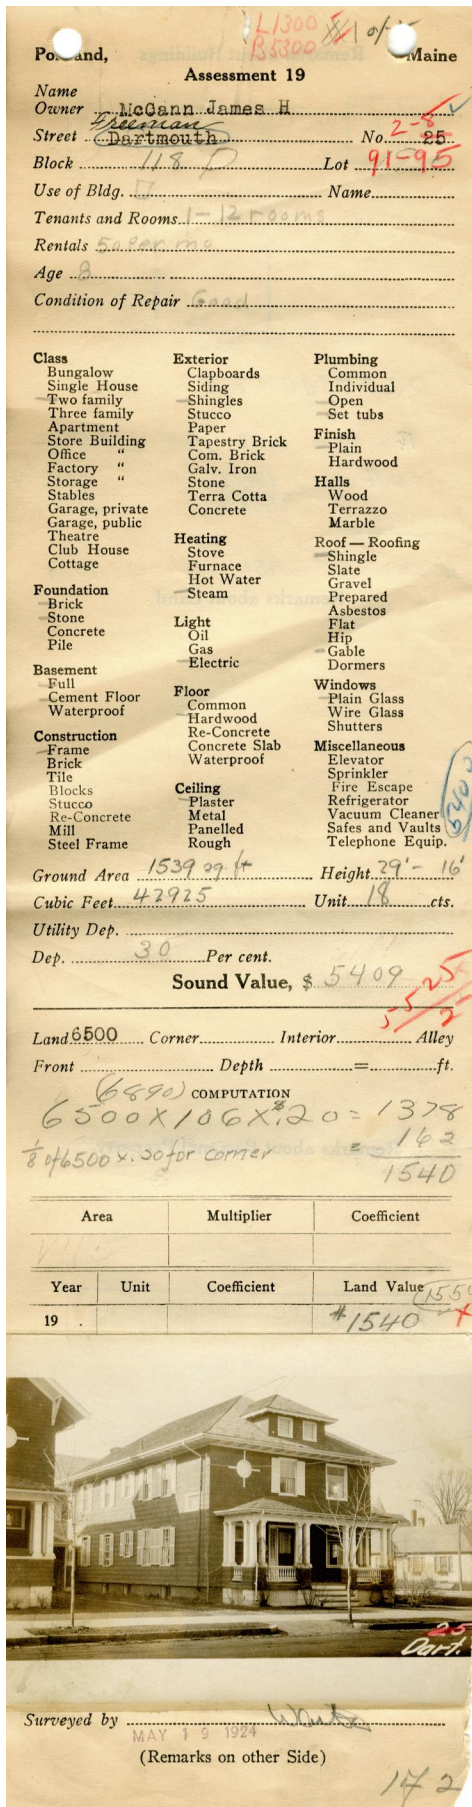 L1300
B5300
Portland, Maine
Assessment 19
Name
Owner McCann James H
Freeman
Street Dartmouth No. 25
2-8
Block 118 D Lot 91-95
Use of Bldg. Name
Tenants and Rooms 1-12 rooms
Rentals 50 per mo
Age 8
Condition of Repair Good
Class
Bungalow
Single House
Two family
Three family
Apartment
Store Building
Office "
Factory "
Storage "
Stables
Garage, private
Garage, public
Theatre
Club House
Cottage
Foundation
Brick
Stone
Concrete
Pile
Basement
Full
Cement Floor
Waterproof
Construction
Frame
Brick
Tile
Blocks
Stucco
Re-Concrete
Mill
Steel Frame
Exterior
Clapboards
Siding
Shingles
Stucco
Paper
Tapestry Brick
Com. Brick
Galv. Iron
Stone
Terra Cotta
Concrete
Heating
Stove
Furnace
Hot Water
Steam
Light
Oil
Gas
Electric
Floor
Common
Hardwood
Re-Concrete
Concrete Slab
Waterproof
Ceiling
Plaster
Metal
Panelled
Rough
Plumbing
Common
Individual
Open
Set tubs
Finish
Plain
Hardwood
Halls
Wood
Terrazzo
Marble
Roof — Roofing
Shingle
Slate
Gravel
Prepared
Asbestos
Flat
Hip
Gable
Dormers
Windows
Plain Glass
Wire Glass
Shutters
Miscellaneous
Elevator
Sprinkler
Fire Escape
Refrigerator
Vacuum Cleaner
Safes and Vaults
Telephone Equip.
5400
Ground Area 1539 sq. ft Height 29'- 16'
Cubic Feet 42925 Unit 18 cts.
Utility Dep.
Dep. 30 Per cent.
Sound Value, $ 5409
5525
Land 6500 Corner Interior Alley
Front Depth = ft.
(6890) COMPUTATION
6500 X 106 X .20 = 1378
1/8 of 6500 x .20 for corner = 162
1540
Area Multiplier Coefficient
Year Unit Coefficient Land Value
19 . #1540
25
Dart.
Surveyed by
MAY 19 1924
(Remarks on other Side)
172